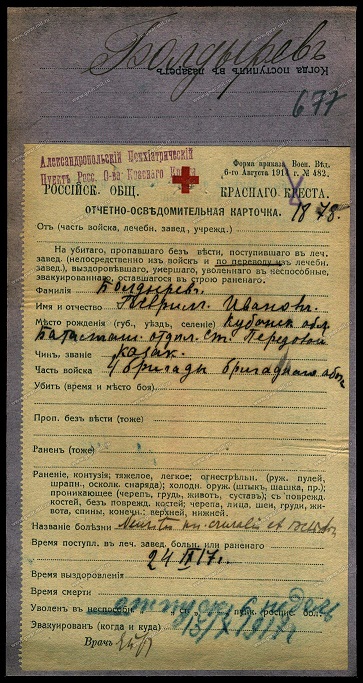 Болдыревъ
Когда поступилъ въ лазаретъ
677
Александропольскій Психіатрическій
Пунктъ Росс. О-ва Краснаго Кр
Форма приказа Воен. Вѣд.
6-го Августа 1914 г. № 482.
РОССІЙСК. ОБЩ. КРАСНАГО КРЕСТА.
ОТЧЕТНО-ОСВѢДОМИТЕЛЬНАЯ КАРТОЧКА. 1878.
Отъ (часть войска, лечебн. завед., учрежд.)
На убитаго, пропавшаго безъ вѣсти, поступившаго въ леч.
завед. (непосредственно изъ войскъ и по переводу изъ лечебн.
завед.), выздоровѣвшаго, умершаго, уволеннаго въ неспособные,
эвакуированнаго, оставшагося въ строю раненаго.
Фамилія Болдыревъ
Имя и отчество Ивановъ.
Мѣсто рожденія (губ., уѣздъ, селеніе) Кубанск обл.
отдѣл. ст. Передовой
Чин. званіе казак.
Часть войска бригады
Убитъ (время и мѣсто боя)
Проп. безъ вѣсти (тоже)
Раненъ (тоже)
Раненіе, контузія; тяжелое, легкое; огнестрѣльн. (руж. пулей,
шрапн., осколк. снаряда); холодн. оруж. (штык., шашка, пр.);
проникающее (черепъ, грудь, животъ, суставъ); съ поврежд.
костей, безъ поврежд. костей; черепа, лица, шеи, груди, жи-
вота, спины, конечн.: верхней, нижней.
Названіе болѣзни Neuritis
Время поступл. въ леч. завед. больн. или раненаго
24 IX 17 г.
Время выздоровленія
Время смерти
Уволенъ въ неспособн.
Эвакуированъ (когда и куда)
Врачъ